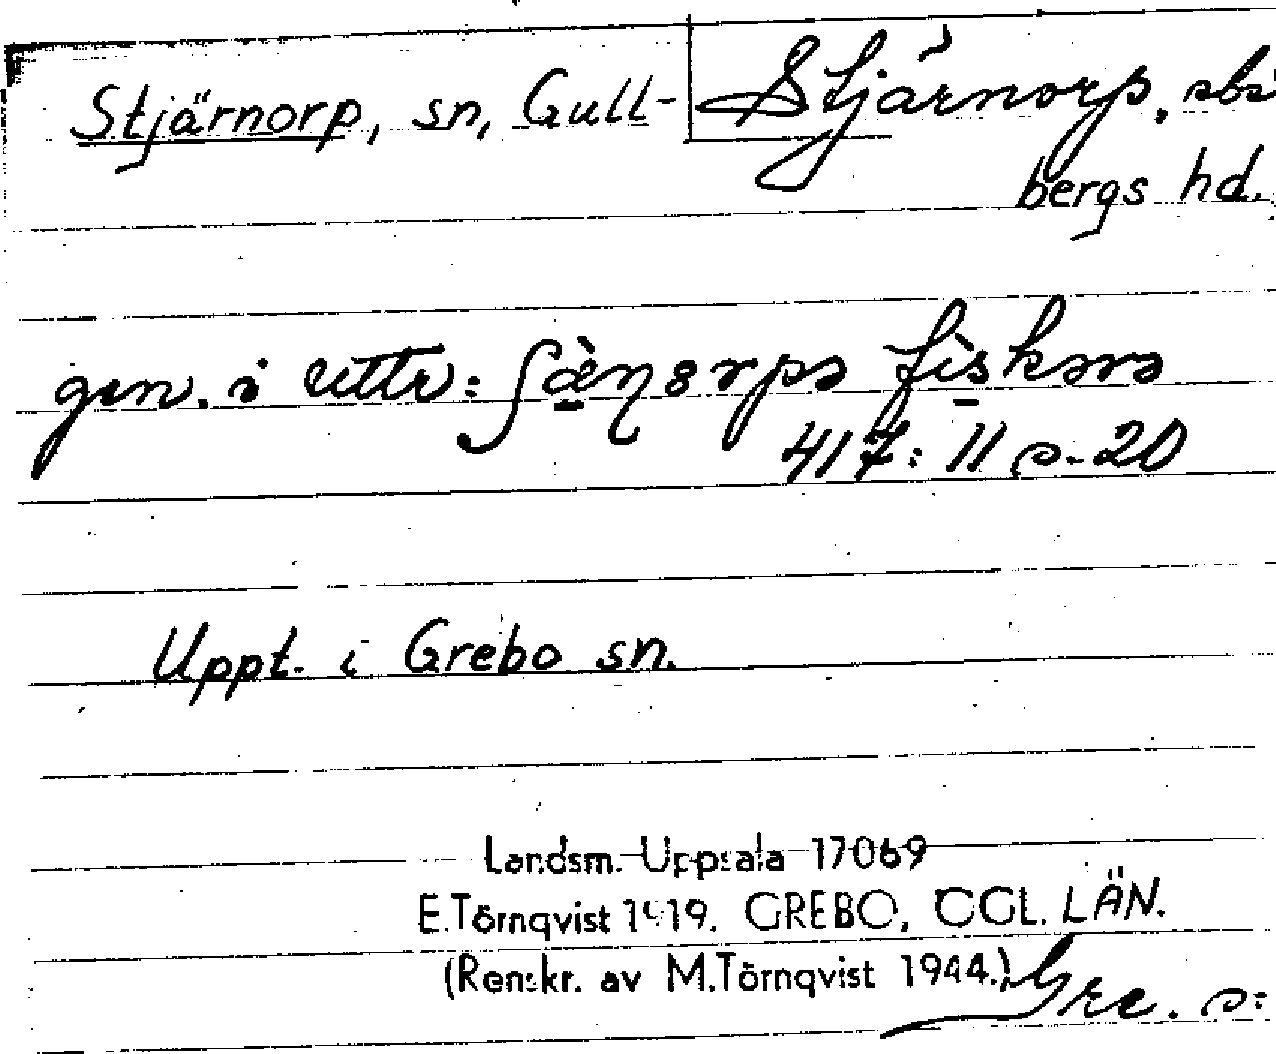 Stjärnorp, sn, Gull- Stjärnorp. sbs
bergs hd.
gen. i uttr: fiskare
417: 11 s. 20
Uppt. i Grebo sn.
Landsm. Uppsala 17069
E.Törnqvist 1919. GREBO, ÖGL. LÄN.
(Renskr. av M.Törnqvist 1944.) Gre. s: